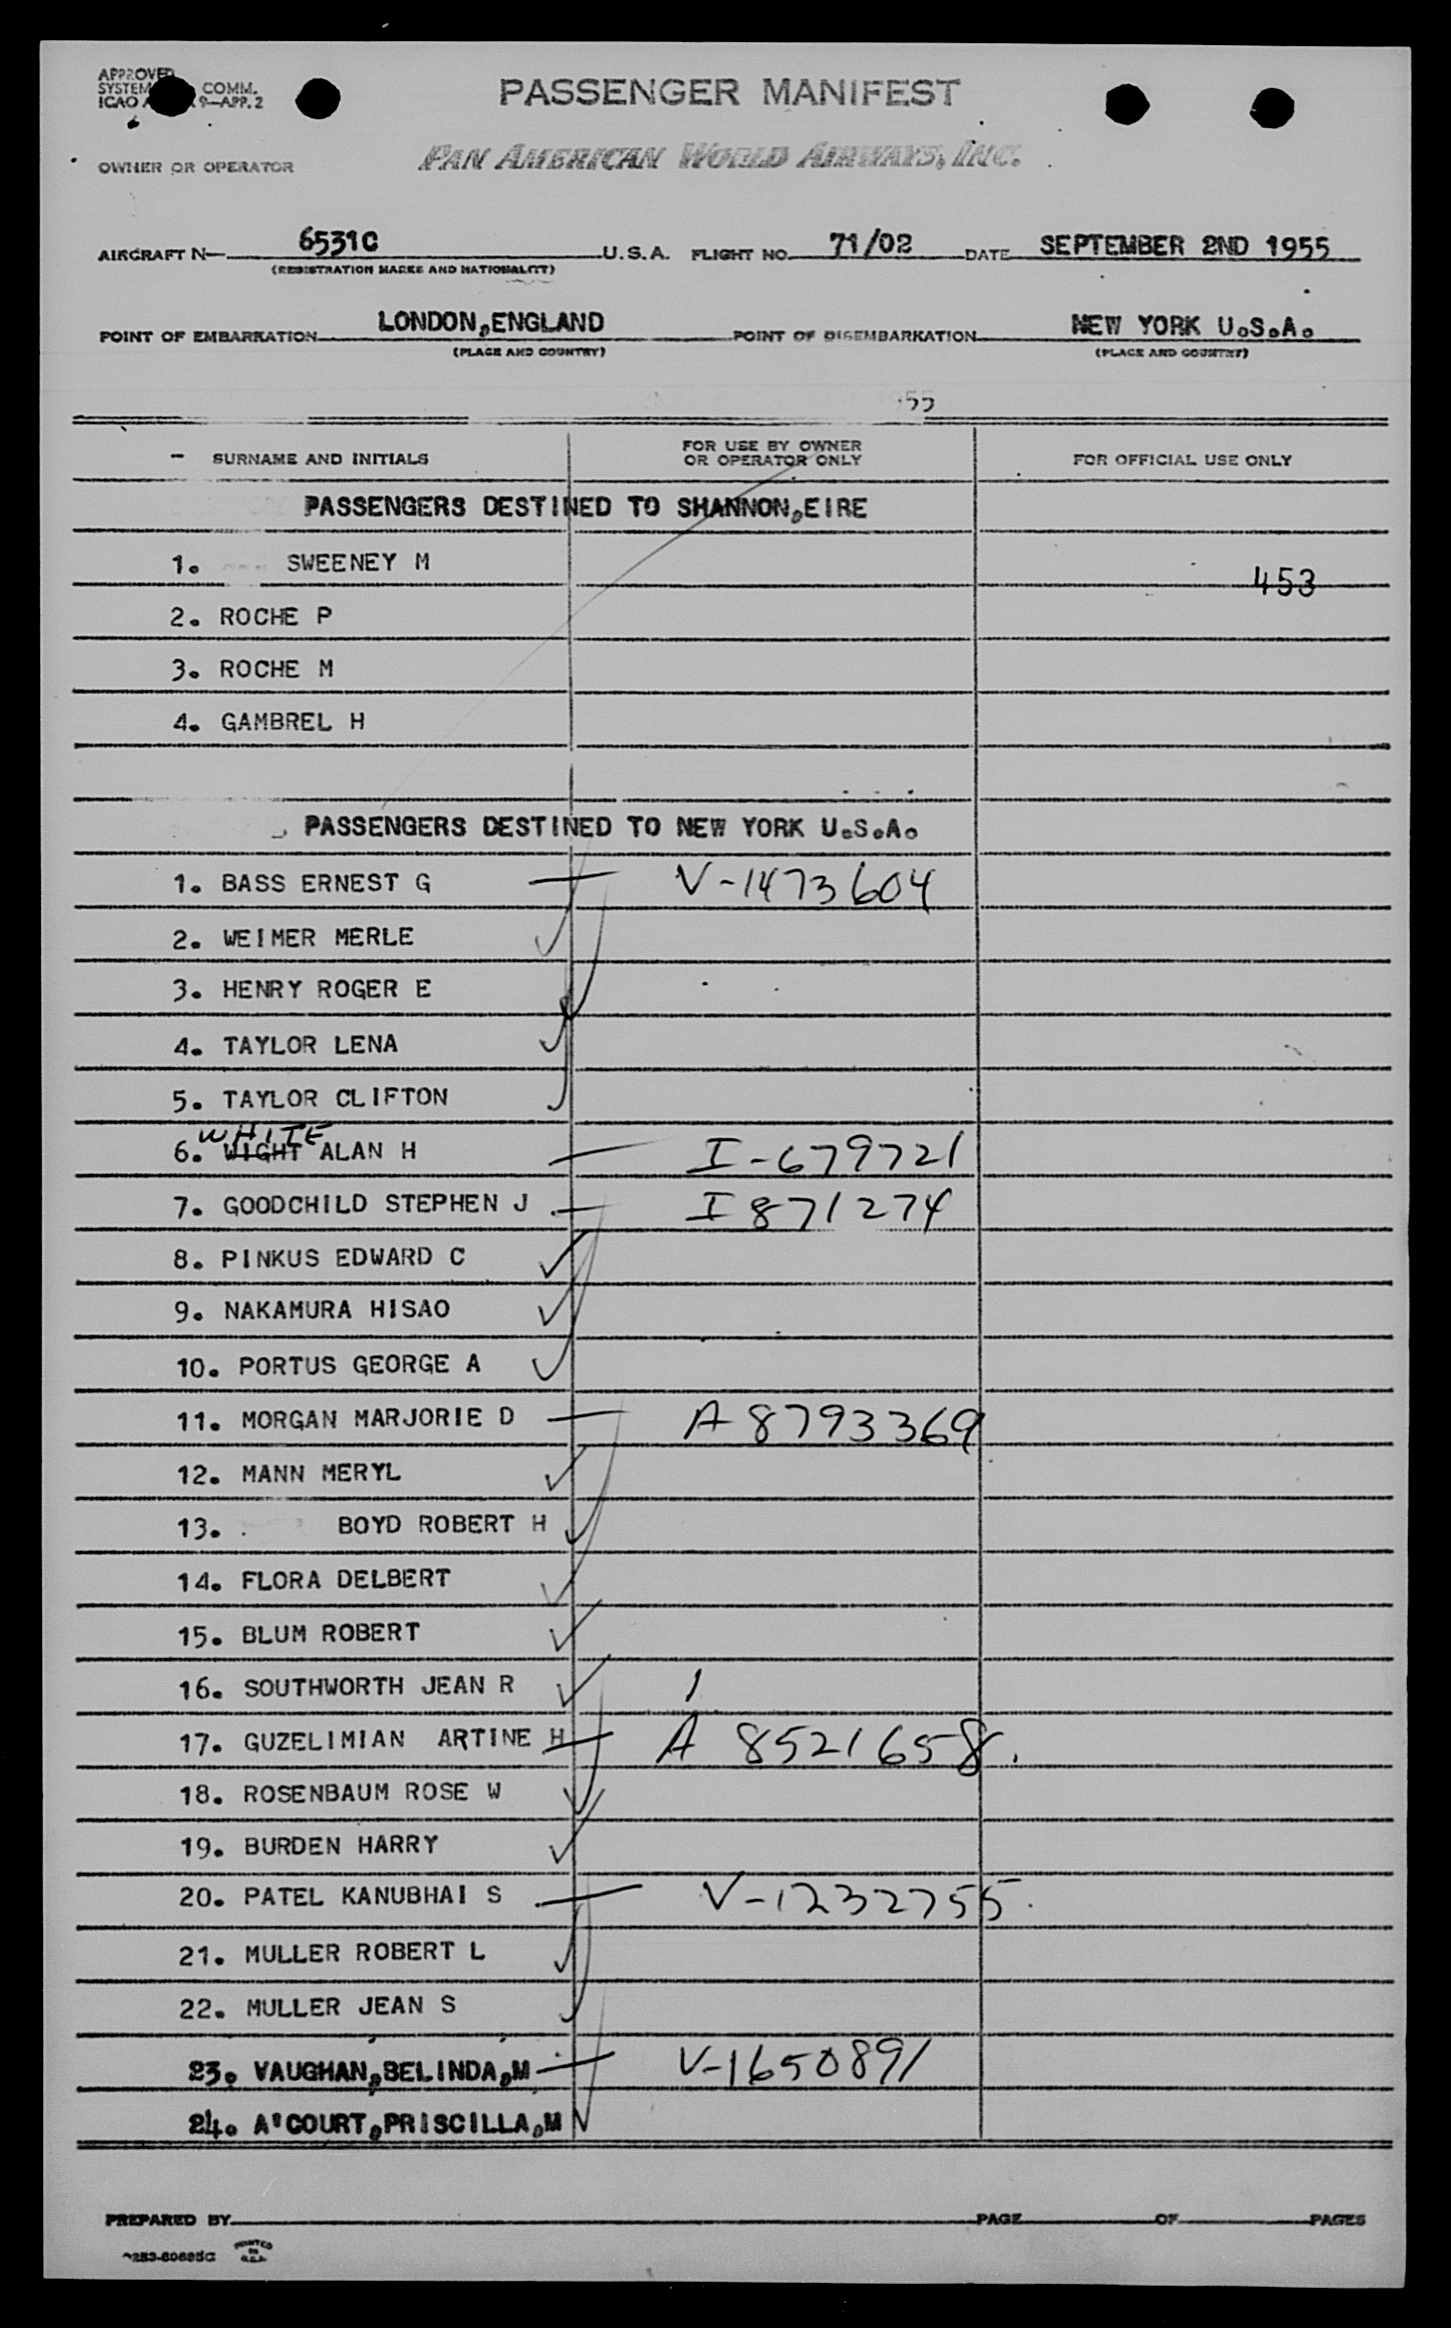 APPROVED
SYSTEM COMM.
ICAO A 9—APP. 2
PASSENGER MANIFEST
OWNER OR OPERATOR PAN AMERICAN WORLD AIRWAYS, INC.
AIRCRAFT N— 6531C U.S.A. FLIGHT NO. 71/02 DATE SEPTEMBER 2ND 1955
(REGISTRATION MARKS AND NATIONALITY)
POINT OF EMBARKATION LONDON,ENGLAND POINT OF DISEMBARKATION NEW YORK U.S.A.
(PLACE AND COUNTRY) (PLACE AND COUNTRY)
55
SURNAME AND INITIALS FOR USE BY OWNER OR OPERATOR ONLY FOR OFFICIAL USE ONLY
PASSENGERS DESTINED TO SHANNON,EIRE
1. SWEENEY M 453
2. ROCHE P
3. ROCHE M
4. GAMBREL H
PASSENGERS DESTINED TO NEW YORK U.S.A.
1. BASS ERNEST G — V-1473604
2. WEIMER MERLE ✓
3. HENRY ROGER E ✓
4. TAYLOR LENA ✓
5. TAYLOR CLIFTON ✓
WHITE
6. WIGHT ALAN H — I-679721
7. GOODCHILD STEPHEN J — I 871274
8. PINKUS EDWARD C ✓
9. NAKAMURA HISAO ✓
10. PORTUS GEORGE A ✓
11. MORGAN MARJORIE D — A 8793369
12. MANN MERYL ✓
13. BOYD ROBERT H ✓
14. FLORA DELBERT ✓
15. BLUM ROBERT ✓
16. SOUTHWORTH JEAN R ✓
17. GUZELIMIAN ARTINE H — A 8521658.
18. ROSENBAUM ROSE W ✓
19. BURDEN HARRY ✓
20. PATEL KANUBHAI S — V-1232755.
21. MULLER ROBERT L ✓
22. MULLER JEAN S ✓
23. VAUGHAN,BELINDA,M — V-1650891
24. A'COURT,PRISCILLA,M ✓
PREPARED BY PAGE OF PAGES
PRINTED IN U.S.A.